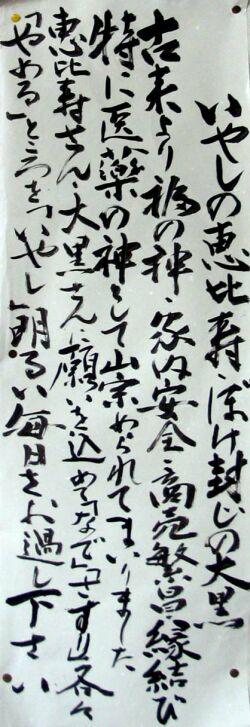 いやしの恵比寿、ぼけ封じの大黒
古来より福の神、家内安全、商売繁昌、縁結び
特に医薬の神として崇められてまいりました
恵比寿さん、大黒さんに願いを込めてなで、さすり各々
「やめる」ところをいやし、明るい毎日をお過し下さい